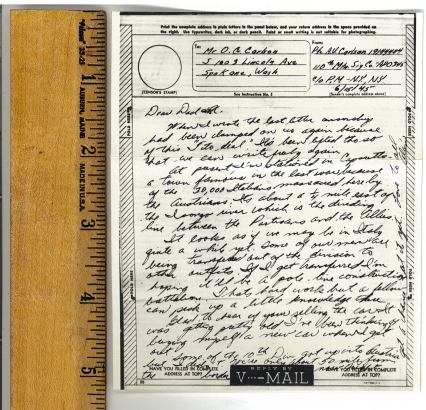 Print the complete address in plain letters in the panel below, and your return address in the space provided on
the right. Use typewriter, dark ink, or dark pencil. Faint or small writing is not suitable for photographing.
To
From
Mr. O. G. Carlson
Pfc. A.V. Carlson 19144404
S 1003 Lincoln Ave
110th Mtn. Sig Co. APO 345
Spokane, Wash
c/o P.M. N.Y. N.Y.
6/15/45
(CENSOR'S STAMP)
See Instruction No. 2
(Sender's complete address above)
Dear Dad
When I wrote the last letter censorship
had been clamped on us again because
of this Tito deal. It's been lifted tho so
that we can write freely again.
At present I'm stationed in
a town famous in the last war because
of the 30,000 Italians massacred here by
the Austrians. It's about a ½ mile east of
the Isonzo river which is the dividing
line between the Partisans and the Allies
It looks as if we may be in Italy
quite a while yet. Some of our men are
being transfered out of the division to
other outfits. If I get transfered I'm
hoping it'll be a pole line construction
battalion. That's hard work but a fellow
can pick up a little knowledge there
Glad to hear of your selling the car. It
was getting pretty old. I've been thinking
buying myself a new car when I get
out
Some of the 10th Div. got up into Austria
but I didn't. We're only about 30 miles from
the border
HAVE YOU FILLED IN COMPLETE
ADDRESS AT TOP?
REPLY BY
V···-MAIL
HAVE YOU FILLED IN COMPLETE
ADDRESS AT TOP?
FOLD HERE
FOLD HERE
AUBURN, MAINE
MADE IN U.S.A.
1
2
3
4
5